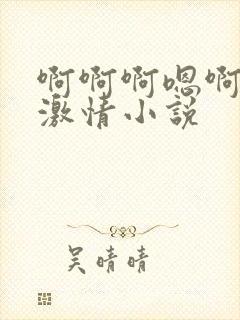 啊啊啊嗯啊
激情小说
吴晴晴